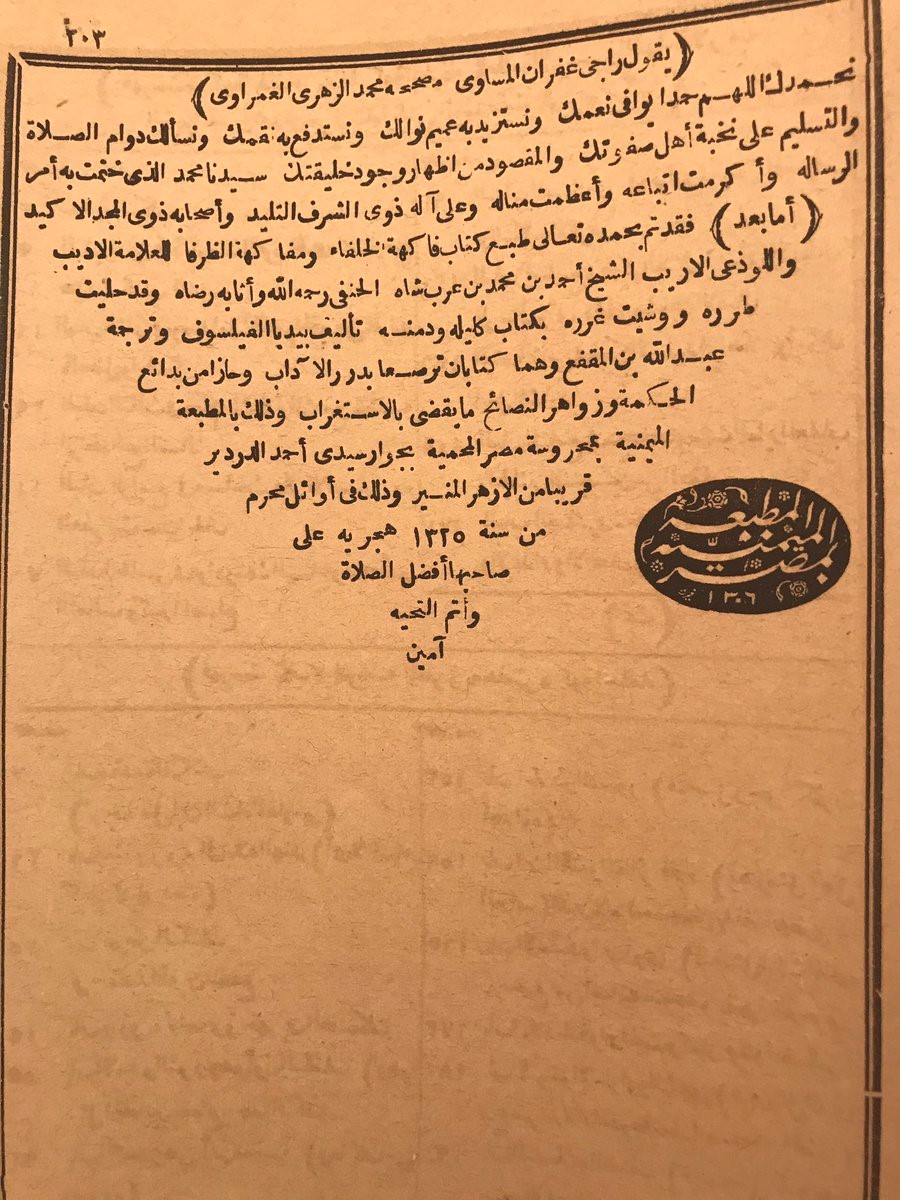 ٢٠٣
(يقول راجى غفران المساوى مصححه محمد الزهرى الغمراوى)
نحمدك اللهم حمدا يوافى نعمك ونستزيد به عميم نوالك ونستدفع به نقمك ونسألك دوام الصلاة
والتسليم على نخبة أهل صفوتك والمقصود من اظهار وجود خليقتك سيدنا محمد الذى ختمت به أمر
الرساله وأكرمت اتباعه وأعظمت مناله وعلى آله ذوى الشرف التليد وأصحابه ذوى المجد الاكيد
(أما بعد) فقد تم بحمده تعالى طبع كتاب فاكهة الخلفاء ومفاكهة الظرفا للعلامة الاديب
واللوذعى الاريب الشيخ أحمد بن محمد بن عرب شاه الحنفى رحمه الله وأنابه رضاه وقد حليت
طرره ووشيت غرره بكتاب كليله ودمنه تأليف بيديا الفيلسوف وترجمة
عبد الله بن المقفع وهما كتابان ترصعا بدرر الآداب وحازا من بدائع
الحكمة وزواهر النصائح ما يقضى بالاستغراب وذلك بالمطبعة
الميمنية بمحروسة مصر المحمية بجوار سيدى أحمد الدردير
قريبا من الازهر المنير وذلك فى أوائل محرم
من سنة ١٣٢٥ هجريه على
صاحبها أفضل الصلاة
وأتم التحيه
آمين
المطبعة
الميمنية
بمصر
١٣٠٦